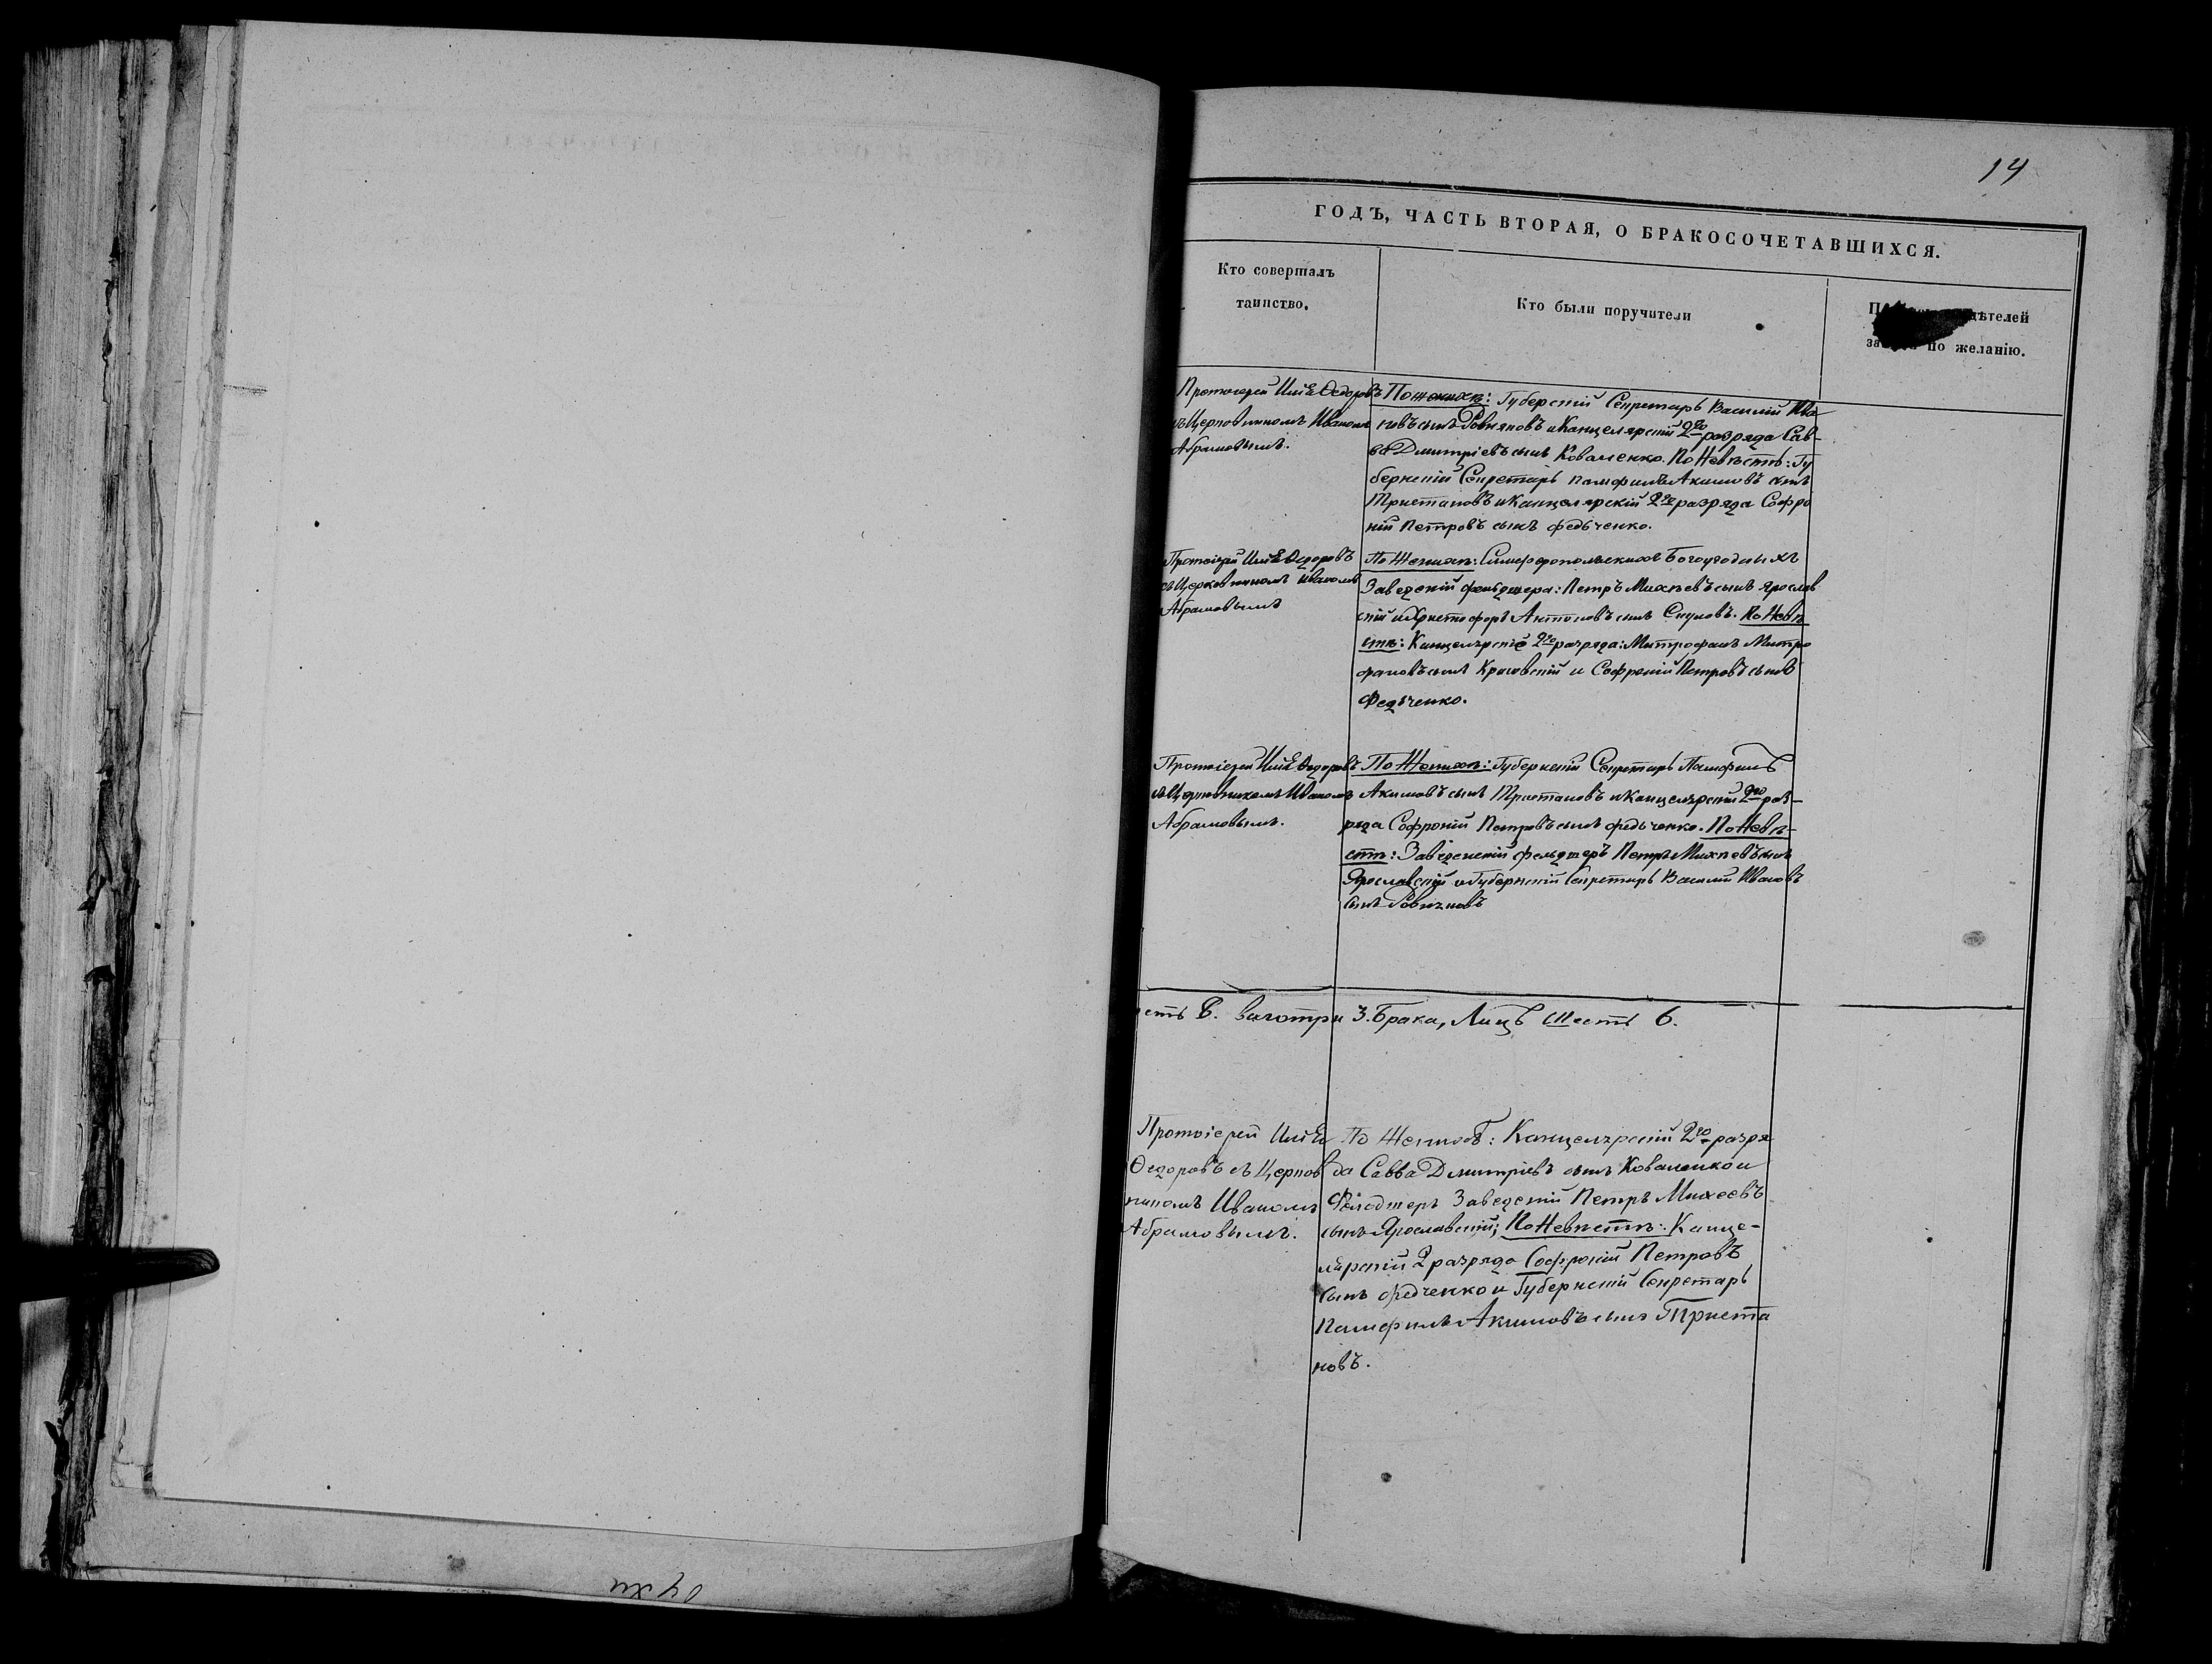 14
ГОДЪ, ЧАСТЬ ВТОРАЯ, О БРАКОСОЧЕТАВШИХСЯ.
Кто совершалъ
таинство.
Кто были поручители
дѣтелей
по желанію.
Протоіерей Илія Ѳедоровъ
съ Церковникомъ Иваномъ
Абрамовымъ.
По женихѣ: Губерскій Секретарь Василій Ива
новъ сынъ Ровняковъ и Канцелярскій 2го разряда Сав-
ва Дмитріевъ сынъ Коваленко. По Невѣстѣ: Гу
бернскій Секретарь Памфилъ Акимовъ сынъ
Тристановъ и Канцелярскій 2го разряда Софро
ній Петровъ сынъ Федьченко.
Протоіерей Илія Ѳедоровъ
съ Церковникомъ Иваномъ
Абрамовымъ
По Женихѣ: Симферопольскихъ Богоугодныхъ
Заведеній фельдшера: Петръ Михѣевъ сынъ Ярослав
скій и Христофоръ Антоновъ сынъ. По Невѣ
стѣ: Канцелярскіе 2го разряда: Митрофанъ Митро
фановъ сынъ и Софроній Петровъ сынъ
Федьченко.
Протоіерей Илія Ѳедоровъ
съ Церковникомъ Иваномъ
Абрамовымъ.
По Женихѣ: Губернскій Секретарь Памфилъ
Акимовъ сынъ Тристановъ и Канцелярскій 2го раз-
ряда Софроній Петровъ сынъ Федьченко. По Невѣ-
стѣ: Заведеній фельдшеръ Петръ Михѣевъ сынъ
Ярославскій и Губернскій Секретарь Василій Ивановъ
сынъ Ровняковъ
три 3. Брака, Лицъ Шесть 6.
Протоіерей Илія
Ѳедоровъ съ Церков
никомъ Иваномъ
Абрамовымъ.
По Женихѣ: Канцелярскій 2го разря
да Савва Дмитріевъ сынъ Коваленко и
Фельдшеръ Заведеній Петръ Михеевъ
сынъ Ярославскій; По Невѣстѣ: Канце-
лярскій 2 разряда Софроній Петровъ
сынъ Федченко и Губернскій Секретарь
Памфилъ Акимовъ сынъ Триста
новъ.